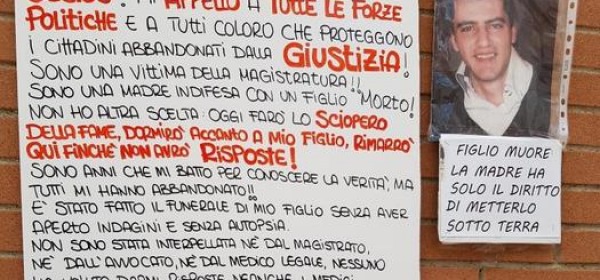 APPELLO A TUTTE LE FORZE
POLITICHE E A TUTTI COLORO CHE PROTEGGONO
I CITTADINI ABBANDONATI DALLA GIUSTIZIA!
SONO UNA VITTIMA DELLA MAGISTRATURA!!
SONO UNA MADRE INDIFESA CON UN FIGLIO "MORTO!
NON HO ALTRA SCELTA: OGGI FARÒ LO SCIOPERO
DELLA FAME, DORMIRÒ ACCANTO A MIO FIGLIO, RIMARRÒ
QUI FINCHÈ NON AVRÒ RISPOSTE!
SONO ANNI CHE MI BATTO PER CONOSCERE LA VERITÀ, MA
TUTTI MI HANNO ABBANDONATO!!
E' STATO FATTO IL FUNERALE DI MIO FIGLIO SENZA AVER
APERTO INDAGINI E SENZA AUTOPSIA.
NON SONO STATA INTERPELLATA NÈ DAL MAGISTRATO,
NÈ DALL'AVVOCATO, NÈ DAL MEDICO LEGALE, NESSUNO
FIGLIO MUORE
LA MADRE HA
SOLO IL DIRITTO
DI METTERLO
SOTTO TERRA